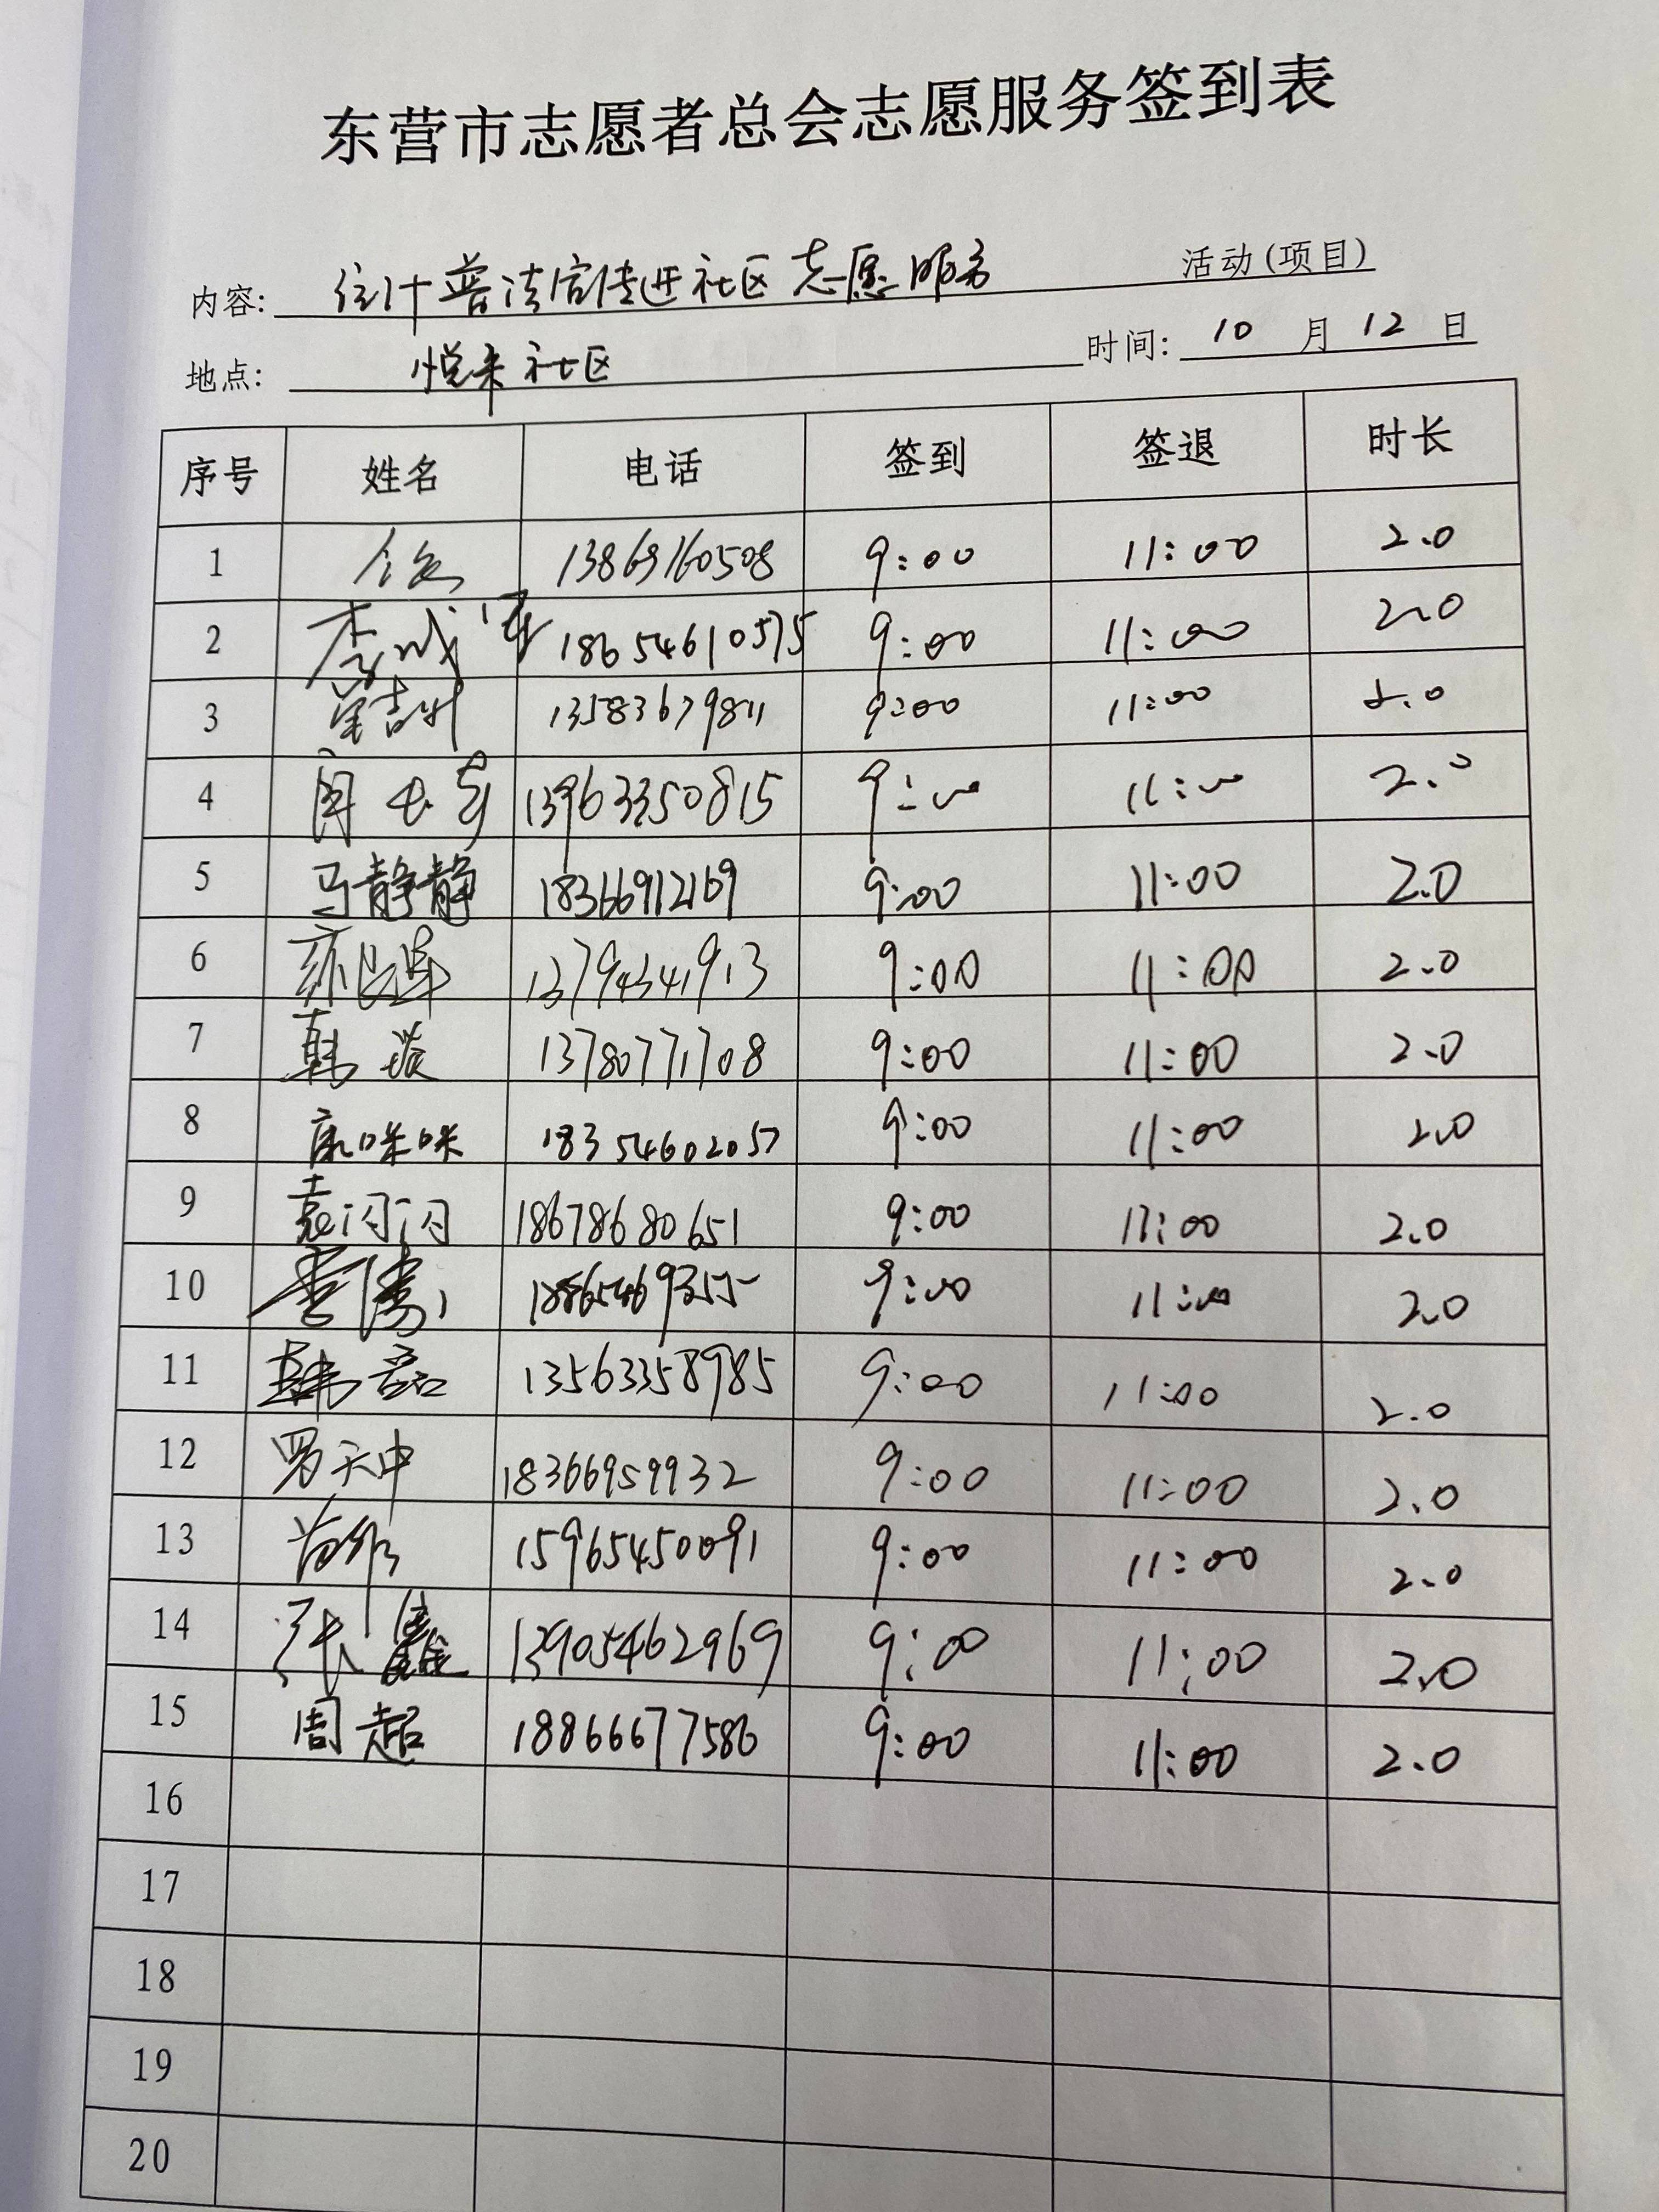 东营市志愿者总会志愿服务签到表
内容: 统计普法宣传进社区志愿服务 活动(项目)
地点: 悦来社区 时间: 10 月 12 日
序号 姓名 电话 签到 签退 时长
1 13869160508 9:00 11:00 2.0
2 李 18654610575 9:00 11:00 2.0
3 13583679811 9:00 11:00 2.0
4 13963350815 9:00 11:00 2.0
5 马静静 18366912169 9:00 11:00 2.0
6 13794341913 9:00 11:00 2.0
7 韩 13780771708 9:00 11:00 2.0
8 咪咪 18354602057 9:00 11:00 2.0
9 袁闪闪 18678680651 9:00 11:00 2.0
10 李 9:00 11:00 2.0
11 韩磊 13563358985 9:00 11:00 2.0
12 罗天中 18366959932 9:00 11:00 2.0
13 15965450091 9:00 11:00 2.0
14 张鑫 13905462969 9:00 11:00 2.0
15 周超 18866677586 9:00 11:00 2.0
16
17
18
19
20